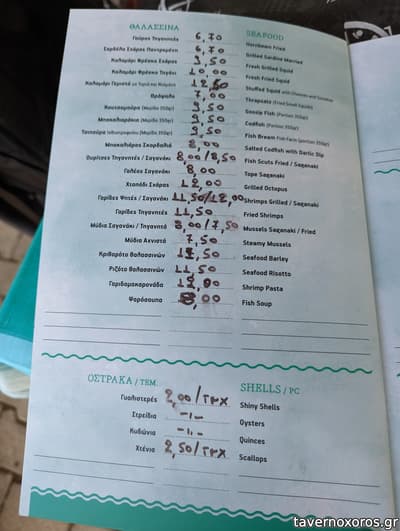 ΘΑΛΑΣΣΙΝΑ SEAFOOD
Γαύρος Τηγανητός 6,70 Hornbeam Fried
Σαρδέλα Σχάρας Παντρεμένη 6,70 Grilled Sardine Married
Καλαμάρι Φρέσκο Σχάρας 9,50 Fresh Grilled Squid
Καλαμάρι Φρέσκο Τηγάνι 10,00 Fresh Fried Squid
Καλαμάρι Γεμιστό με Τυριά και Ντομάτα 12,50 Stuffed Squid with Cheeses and Tomatoes
Θράψαλο 7,00 Thrapsala (Fried Small Squids)
Κουτσομούρα (Μερίδα 350gr) 9,50 Goosie Fish (Portion 350gr)
Μπακαλιαράκια (Μερίδα 350gr) 9,50 Codfish (Portion 350gr)
Τσιπούρα Ιχθυοτροφείου (Μερίδα 350gr) 9,50 Fish Bream Fish Farm (portion 350gr)
Μπακαλιάρος Σκορδαλιά 8,00 Salted Codfish with Garlic Dip
Ουρίτσες Τηγανητές / Σαγανάκι 8,00/8,50 Fish Scuts Fried / Saganaki
Γαλέος Σαγανάκι 8,00 Tope Saganaki
Χταπόδι Σχάρας 12,00 Grilled Octopus
Γαρίδες Ψητές / Σαγανάκι 11,50/12,00 Shrimps Grilled / Saganaki
Γαρίδες Τηγανητές 11,50 Fried Shrimps
Μύδια Σαγανάκι / Τηγανητά 8,00/7,50 Mussels Saganaki / Fried
Μύδια Αχνιστά 7,50 Steamy Mussels
Κριθαρότο Θαλασσινών 12,50 Seafood Barley
Ριζότο Θαλασσινών 11,50 Seafood Risotto
Γαριδομακαρονάδα 12,00 Shrimp Pasta
Ψαρόσουπα 8,00 Fish Soup
ΟΣΤΡΑΚΑ / ΤΕΜ. SHELLS / PC
Γυαλιστερές 2,00/τμχ Shiny Shells
Στρείδια -11- Oysters
Κυδώνια -11- Quinces
Χτένια 2,50/τμχ Scallops
tavernoxoros.gr